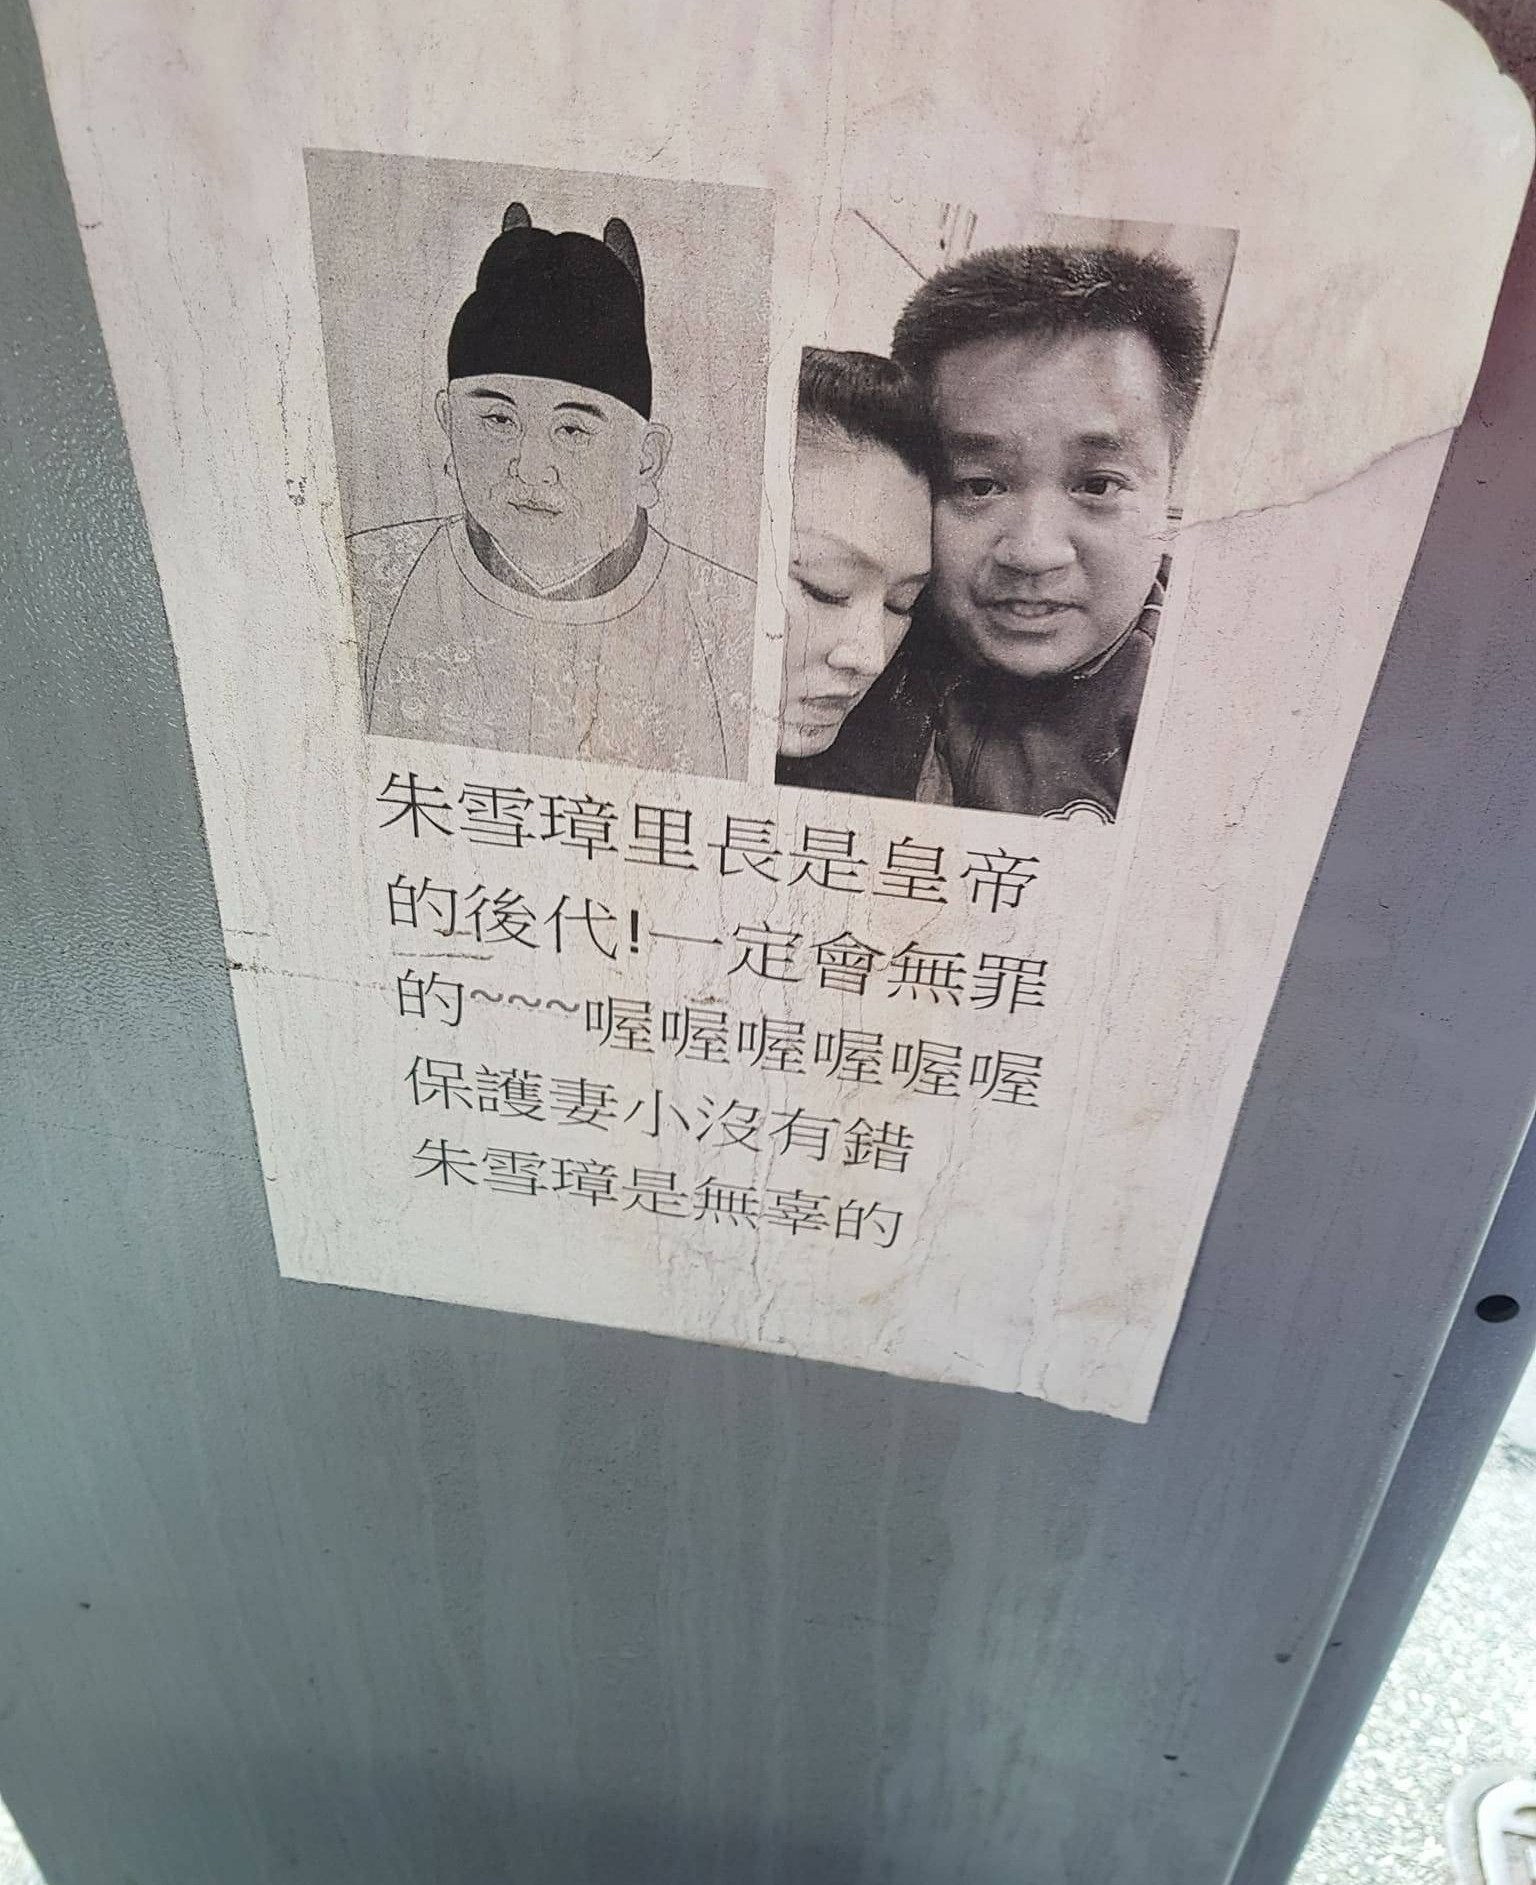 朱雪璋里長是皇帝
的後代!一定會無罪
的~~~喔喔喔喔喔喔
保護妻小沒有錯
朱雪璋是無辜的